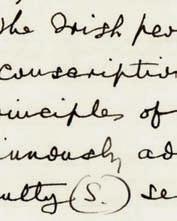 The Irish peo
conscription
rinciples of
inuously ad
culty (S.) se